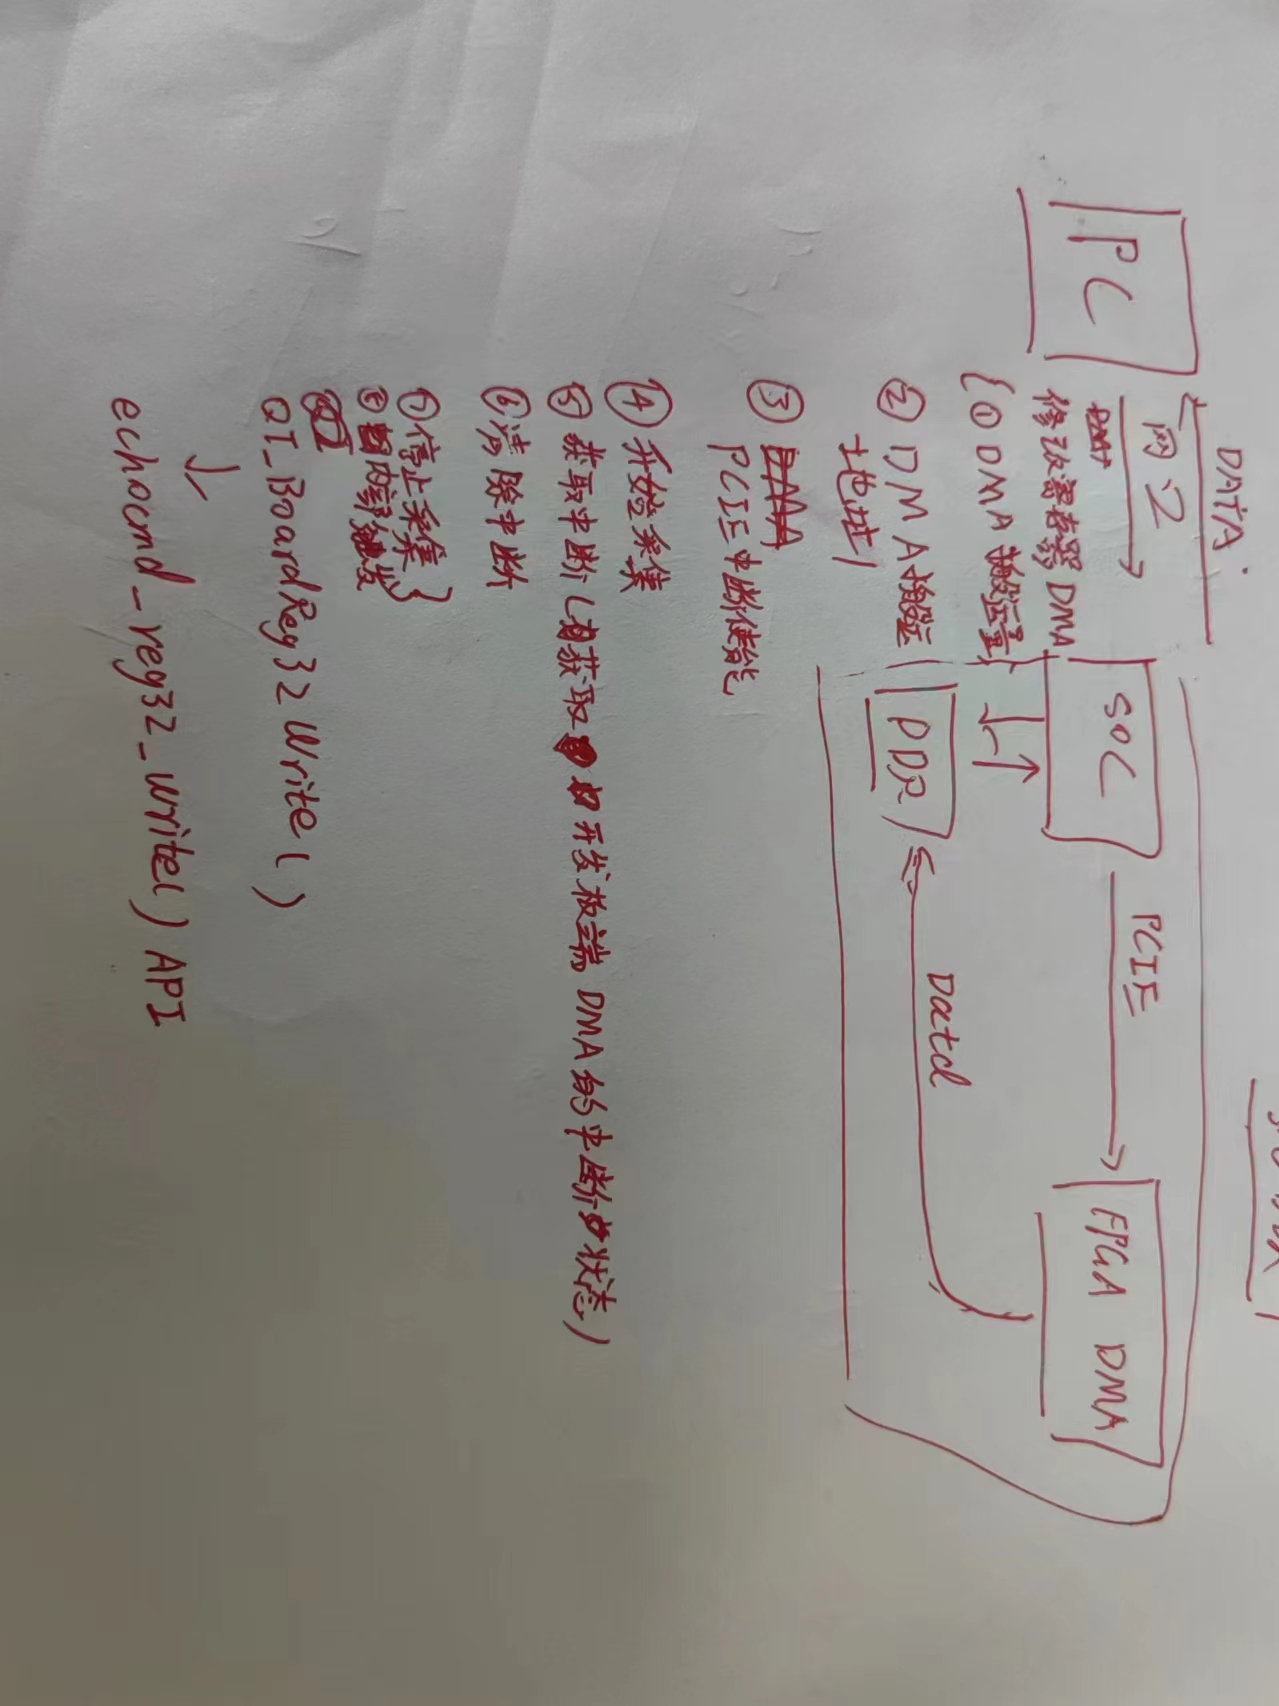 DATA
PC
网口
SOC
PCIE
FPGA DMA
修改寄存器 DMA
{① DMA 搬运量
DDR
Data
② DMA 搬运
地址
③
PCIE中断使能
④ 开始采集
⑤ 获取中断 (获取 开发板端 DMA 的中断状态)
⑥ 清除中断
⑦ 停止采集 }
⑧ 内部触发
QT_BoardReg32Write()
↓
echocmd_reg32_write() API